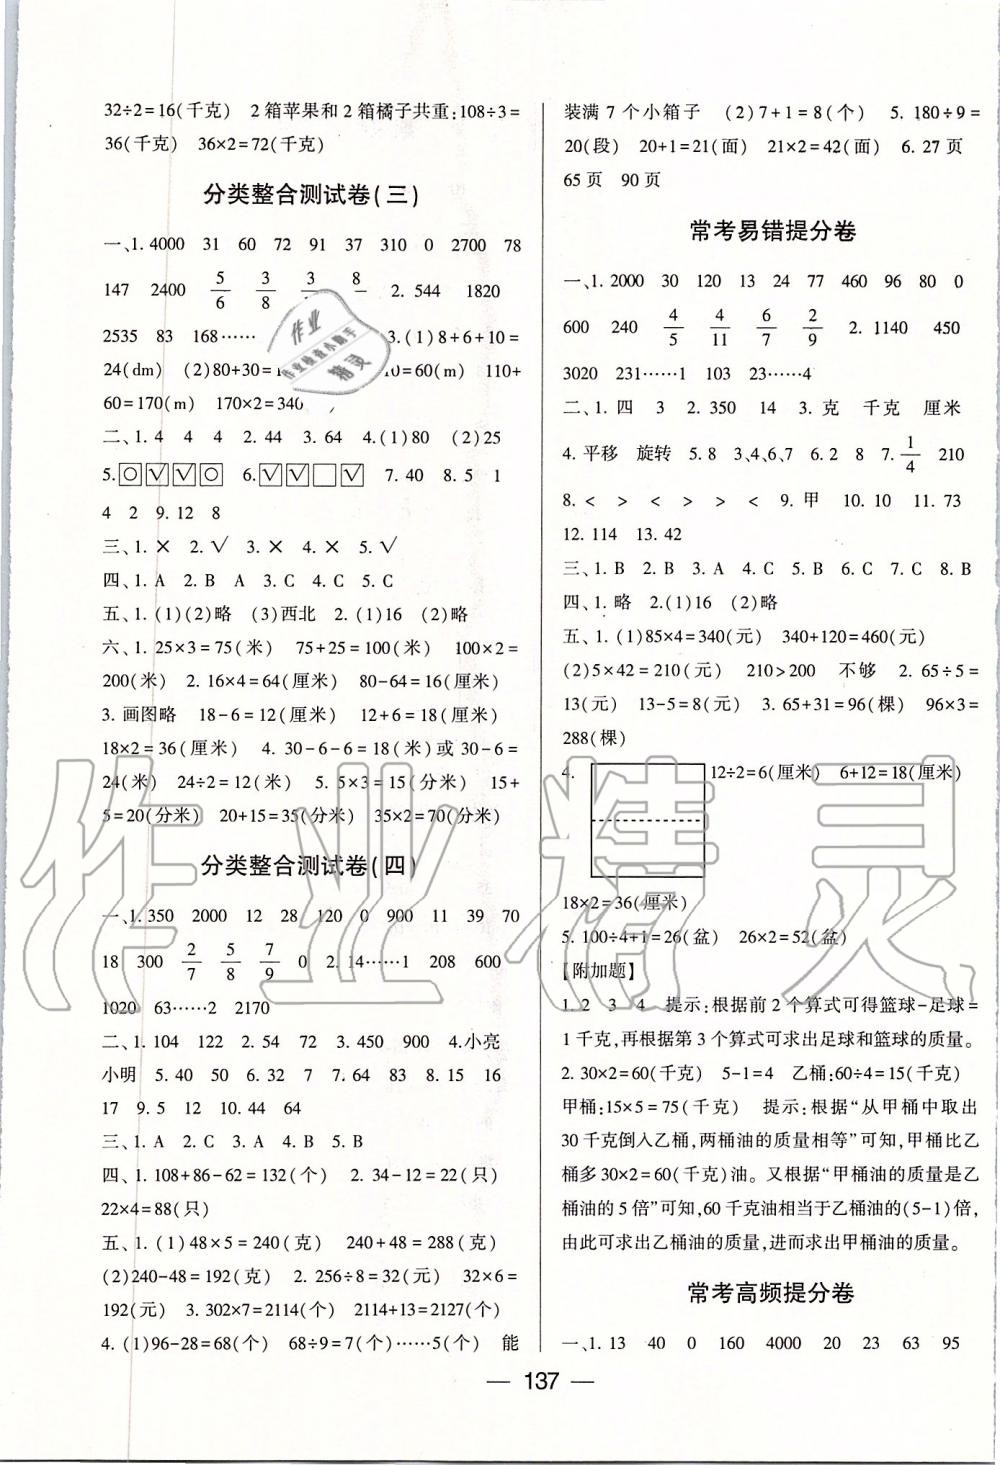 32÷2=16(千克) 2箱苹果和2箱橘子共重:108÷3=
36(千克) 36×2=72(千克)
分类整合测试卷(三)
一、1. 4000 31 60 72 91 37 310 0 2700 78
147 2400 5/6 3/8 3/ 8/ 2. 544 1820
2535 83 168…… 3. (1)8+6+10=
24(dm) (2)80+30= 10=60(m) 110+
60=170(m) 170×2=340
二、1. 4 4 4 2. 44 3. 64 4. (1)80 (2)25
5. ○ √ √ ○ 6. √ √ □ √ 7. 40 8. 5 1
4 2 9. 12 8
三、1. × 2. √ 3. × 4. × 5. √
四、1. A 2. B A 3. C 4. C 5. C
五、1. (1)(2)略 (3)西北 2. (1)16 (2)略
六、1. 25×3=75(米) 75+25=100(米) 100×2=
200(米) 2. 16×4=64(厘米) 80-64=16(厘米)
3. 画图略 18-6=12(厘米) 12+6=18(厘米)
18×2=36(厘米) 4. 30-6-6=18(米)或 30-6=
24(米) 24÷2=12(米) 5. 5×3=15(分米) 15+
5=20(分米) 20+15=35(分米) 35×2=70(分米)
分类整合测试卷(四)
一、1. 350 2000 12 28 120 0 900 11 39 70
18 300 2/7 5/8 7/9 0 2. 14……1 208 600
1020 63……2 2170
二、1. 104 122 2. 54 72 3. 450 900 4. 小亮
小明 5. 40 50 6. 32 7 7. 64 83 8. 15 16
17 9. 5 12 10. 44 64
三、1. A 2. C 3. A 4. B 5. B
四、1. 108+86-62=132(个) 2. 34-12=22(只)
22×4=88(只)
五、1. (1)48×5=240(克) 240+48=288(克)
(2)240-48=192(克) 2. 256÷8=32(元) 32×6=
192(元) 3. 302×7=2114(个) 2114+13=2127(个)
4. (1)96-28=68(个) 68÷9=7(个)……5(个) 能
装满7个小箱子 (2)7+1=8(个) 5. 180÷9=
20(段) 20+1=21(面) 21×2=42(面) 6. 27页
65页 90页
常考易错提分卷
一、1. 2000 30 120 13 24 77 460 96 80 0
600 240 4/5 4/11 6/7 2/9 2. 1140 450
3020 231……1 103 23……4
二、1. 四 3 2. 350 14 3. 克 千克 厘米
4. 平移 旋转 5. 8 3、4、6、7 6. 2 8 7. 1/4 210
8. < > < > > < 9. 甲 10. 10 11. 73
12. 114 13. 42
三、1. B 2. B 3. A 4. C 5. B 6. C 7. C 8. B
四、1. 略 2. (1)16 (2)略
五、1. (1)85×4=340(元) 340+120=460(元)
(2)5×42=210(元) 210>200 不够 2. 65÷5=
13(元) 13-5=8(元) 3. 65+31=96(棵) 96×3=
288(棵)
4. 12÷2=6(厘米) 6+12=18(厘米)
18×2=36(厘米)
5. 100÷4+1=26(盆) 26×2=52(盆)
[附加题]
1. 2 3 4 提示:根据前2个算式可得篮球-足球=
1千克,再根据第3个算式可求出足球和篮球的质量。
2. 30×2=60(千克) 5-1=4 乙桶:60÷4=15(千克)
甲桶:15×5=75(千克) 提示:根据“从甲桶中取出
30千克倒入乙桶,两桶油的质量相等”可知,甲桶比乙
桶多30×2=60(千克)油。又根据“甲桶油的质量是乙
桶油的5倍”可知,60千克油相当于乙桶油的(5-1)倍,
由此可求出乙桶油的质量,进而求出甲桶油的质量。
常考高频提分卷
一、1. 13 40 0 160 4000 20 23 63 95
— 137 —
作业
作业检查小助手
精灵
作业精灵